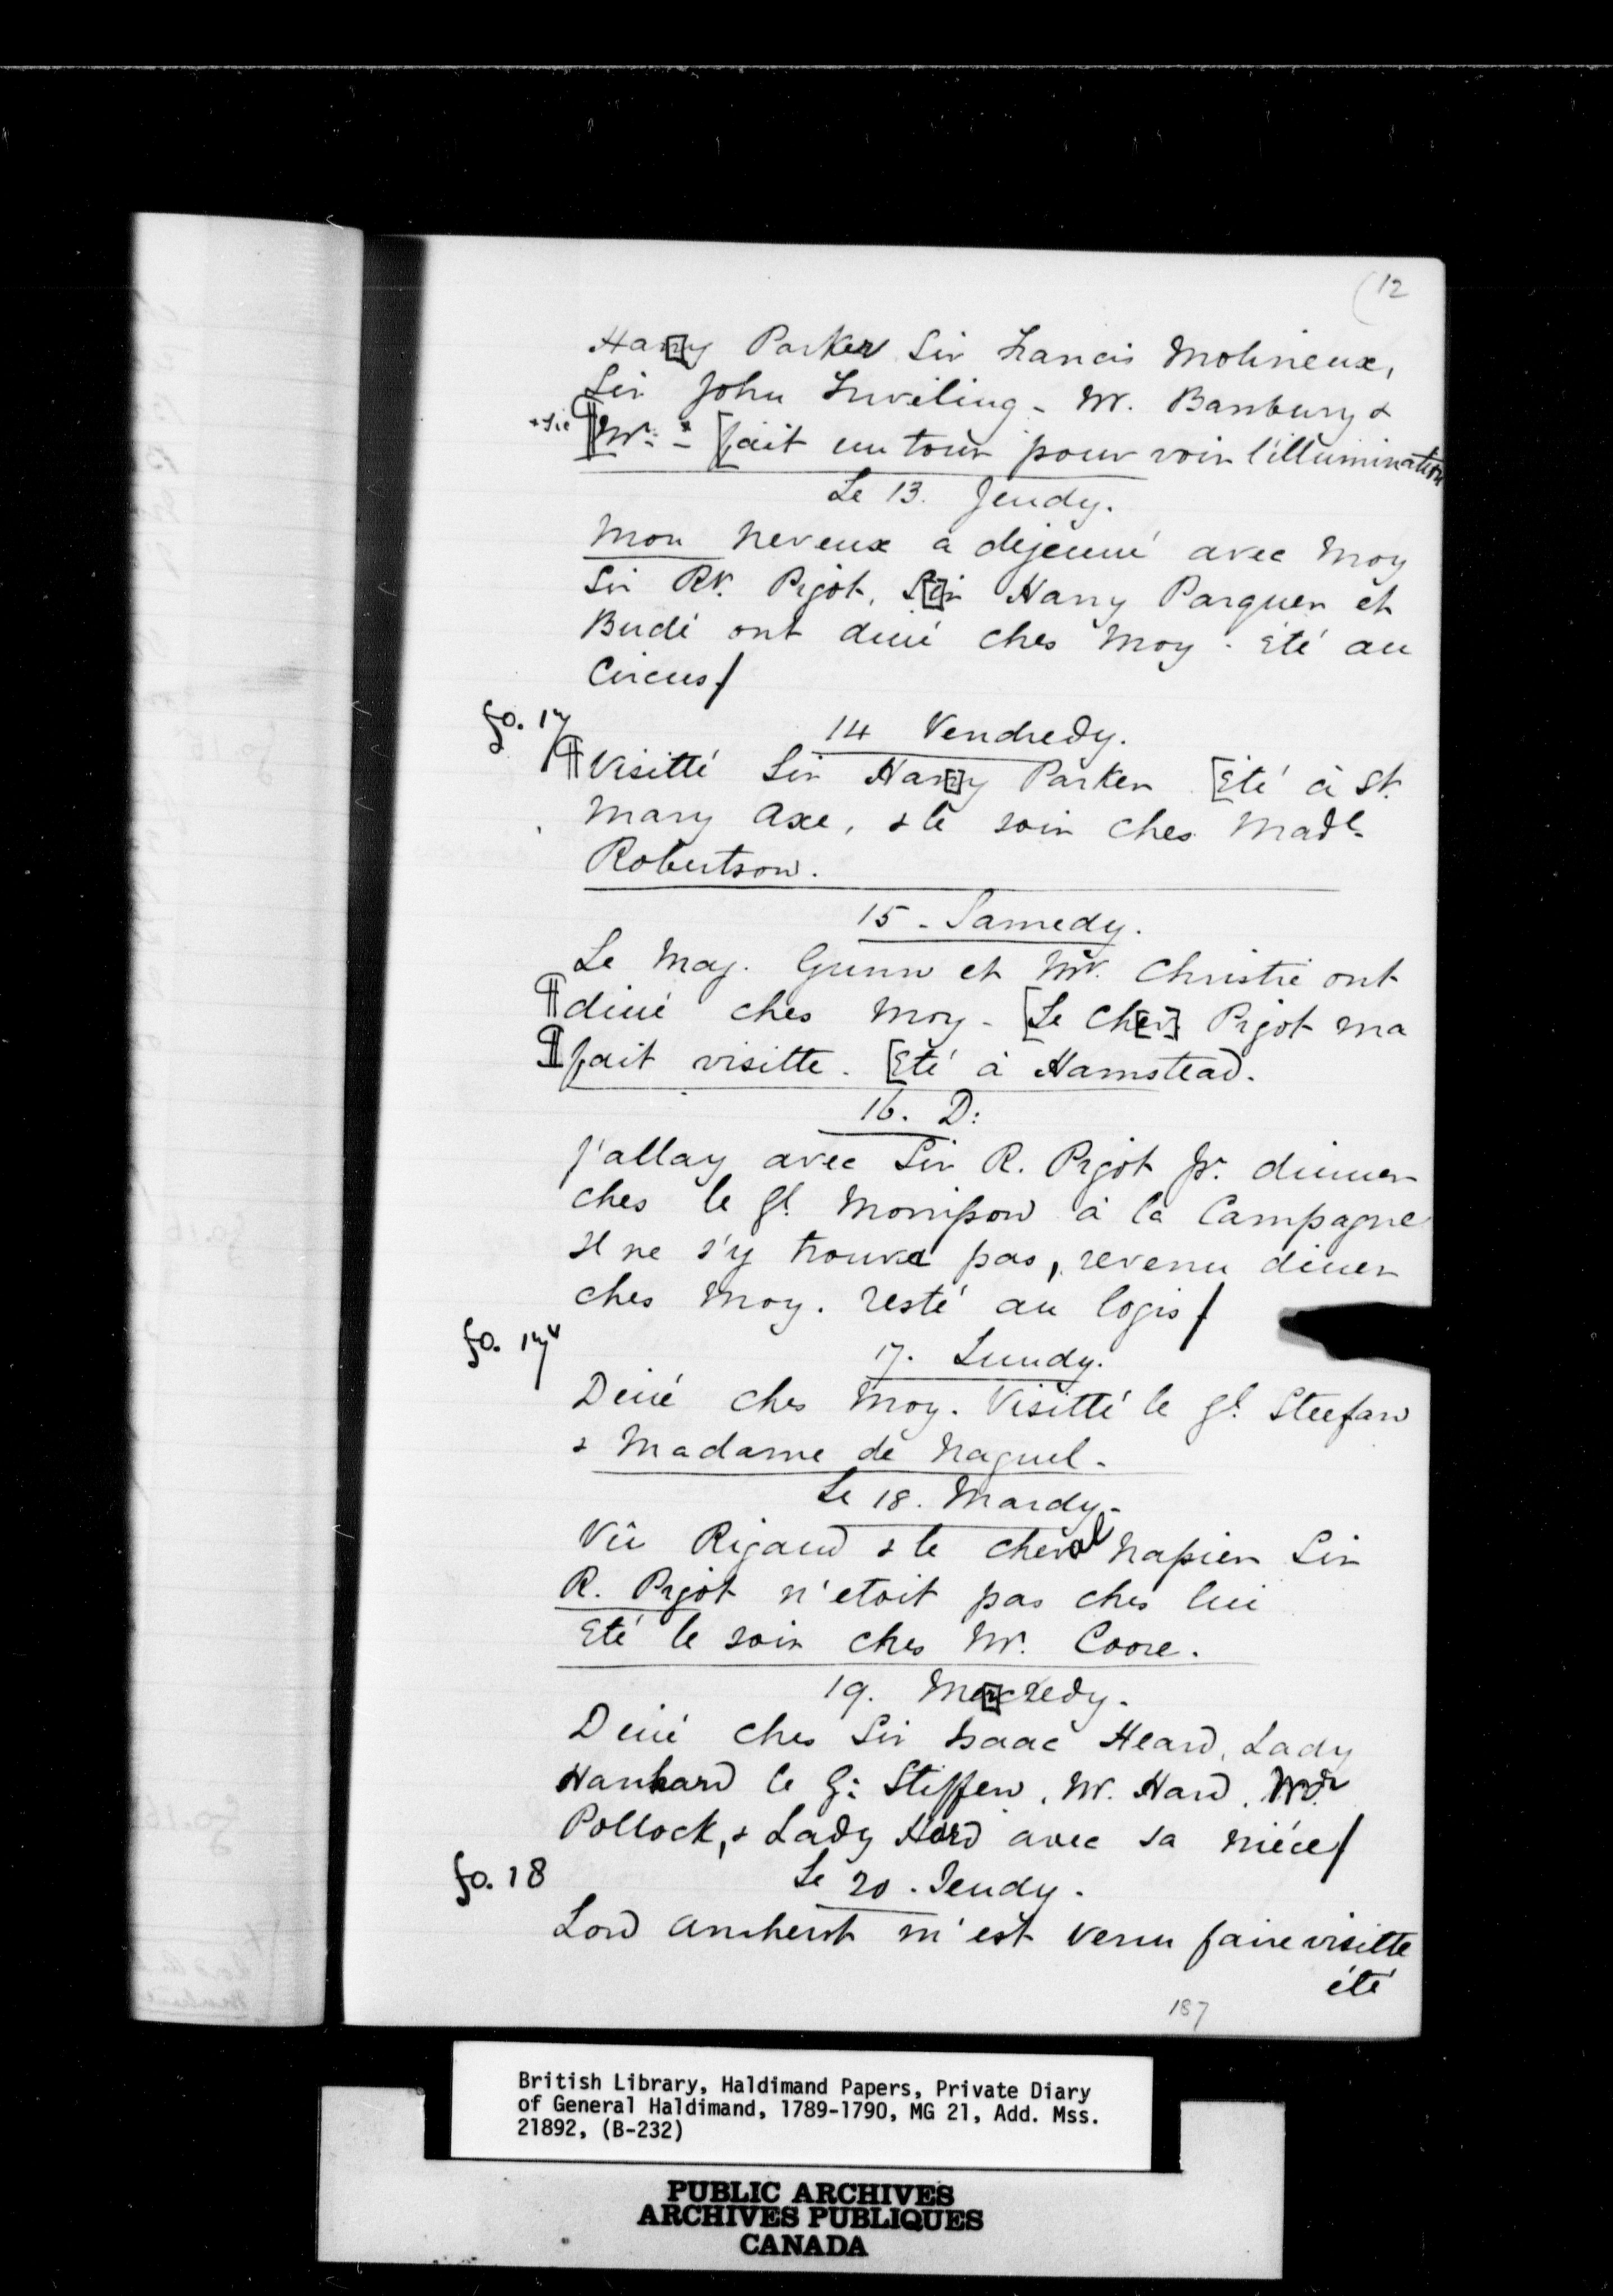 (12
Ha[r]ry Parker Sir Francis Molineux,
Sir John Inviling - Mr. Banbury &
+Sic ¶ Mr: * - [fait un tour pour voir l'illumination
Le 13. Jeudy.
Mon neveux a dejeuné avec Moy
Sir Rt. Pigot, S[i]r Harry Parquer et
Budé ont diné ches Moy. Eté au
Circus/
fo. 17
14 Vendredy.
¶ Visitté Sir Har[r]y Parker [Eté à St.
Mary Axe, & le soir ches Made.
Robertson.
15 - Samedy.
Le Maj. Gunn et Mr. Christie ont
¶ diné ches Moy - [Le Che[r] Pigot ma
¶ fait visitte. [Eté à Hamstead.
16. D:
J'allay avec Sir R. Pigot pr. dinner
ches le Gl. Morrisson à la Campagne
Il ne s'y trouva pas, revenu diner
ches Moy. resté au logis/
fo. 17v
17. Lundy.
Diné ches Moy. Visitté le Gl. Steefan
& Madame de Naguel.
Le 18. Mardy -
Vû Rigaud & le cheval Napier Sir
R. Pigot n'etoit pas ches lui
Eté le soir ches Mr. Coore.
19. Me[r]credy.
Diné ches Sir Isaac Heard, Lady
Hankard le G: Stiffen, Mr. Hard, Mr.
Pollock, & Lady Herd avec sa niéce/
fo. 18
Le 20. Jeudy.
Lord Amherst m'est venu faire visitte
été
187
British Library, Haldimand Papers, Private Diary
of General Haldimand, 1789-1790, MG 21, Add. Mss.
21892, (B-232)
PUBLIC ARCHIVES
ARCHIVES PUBLIQUES
CANADA